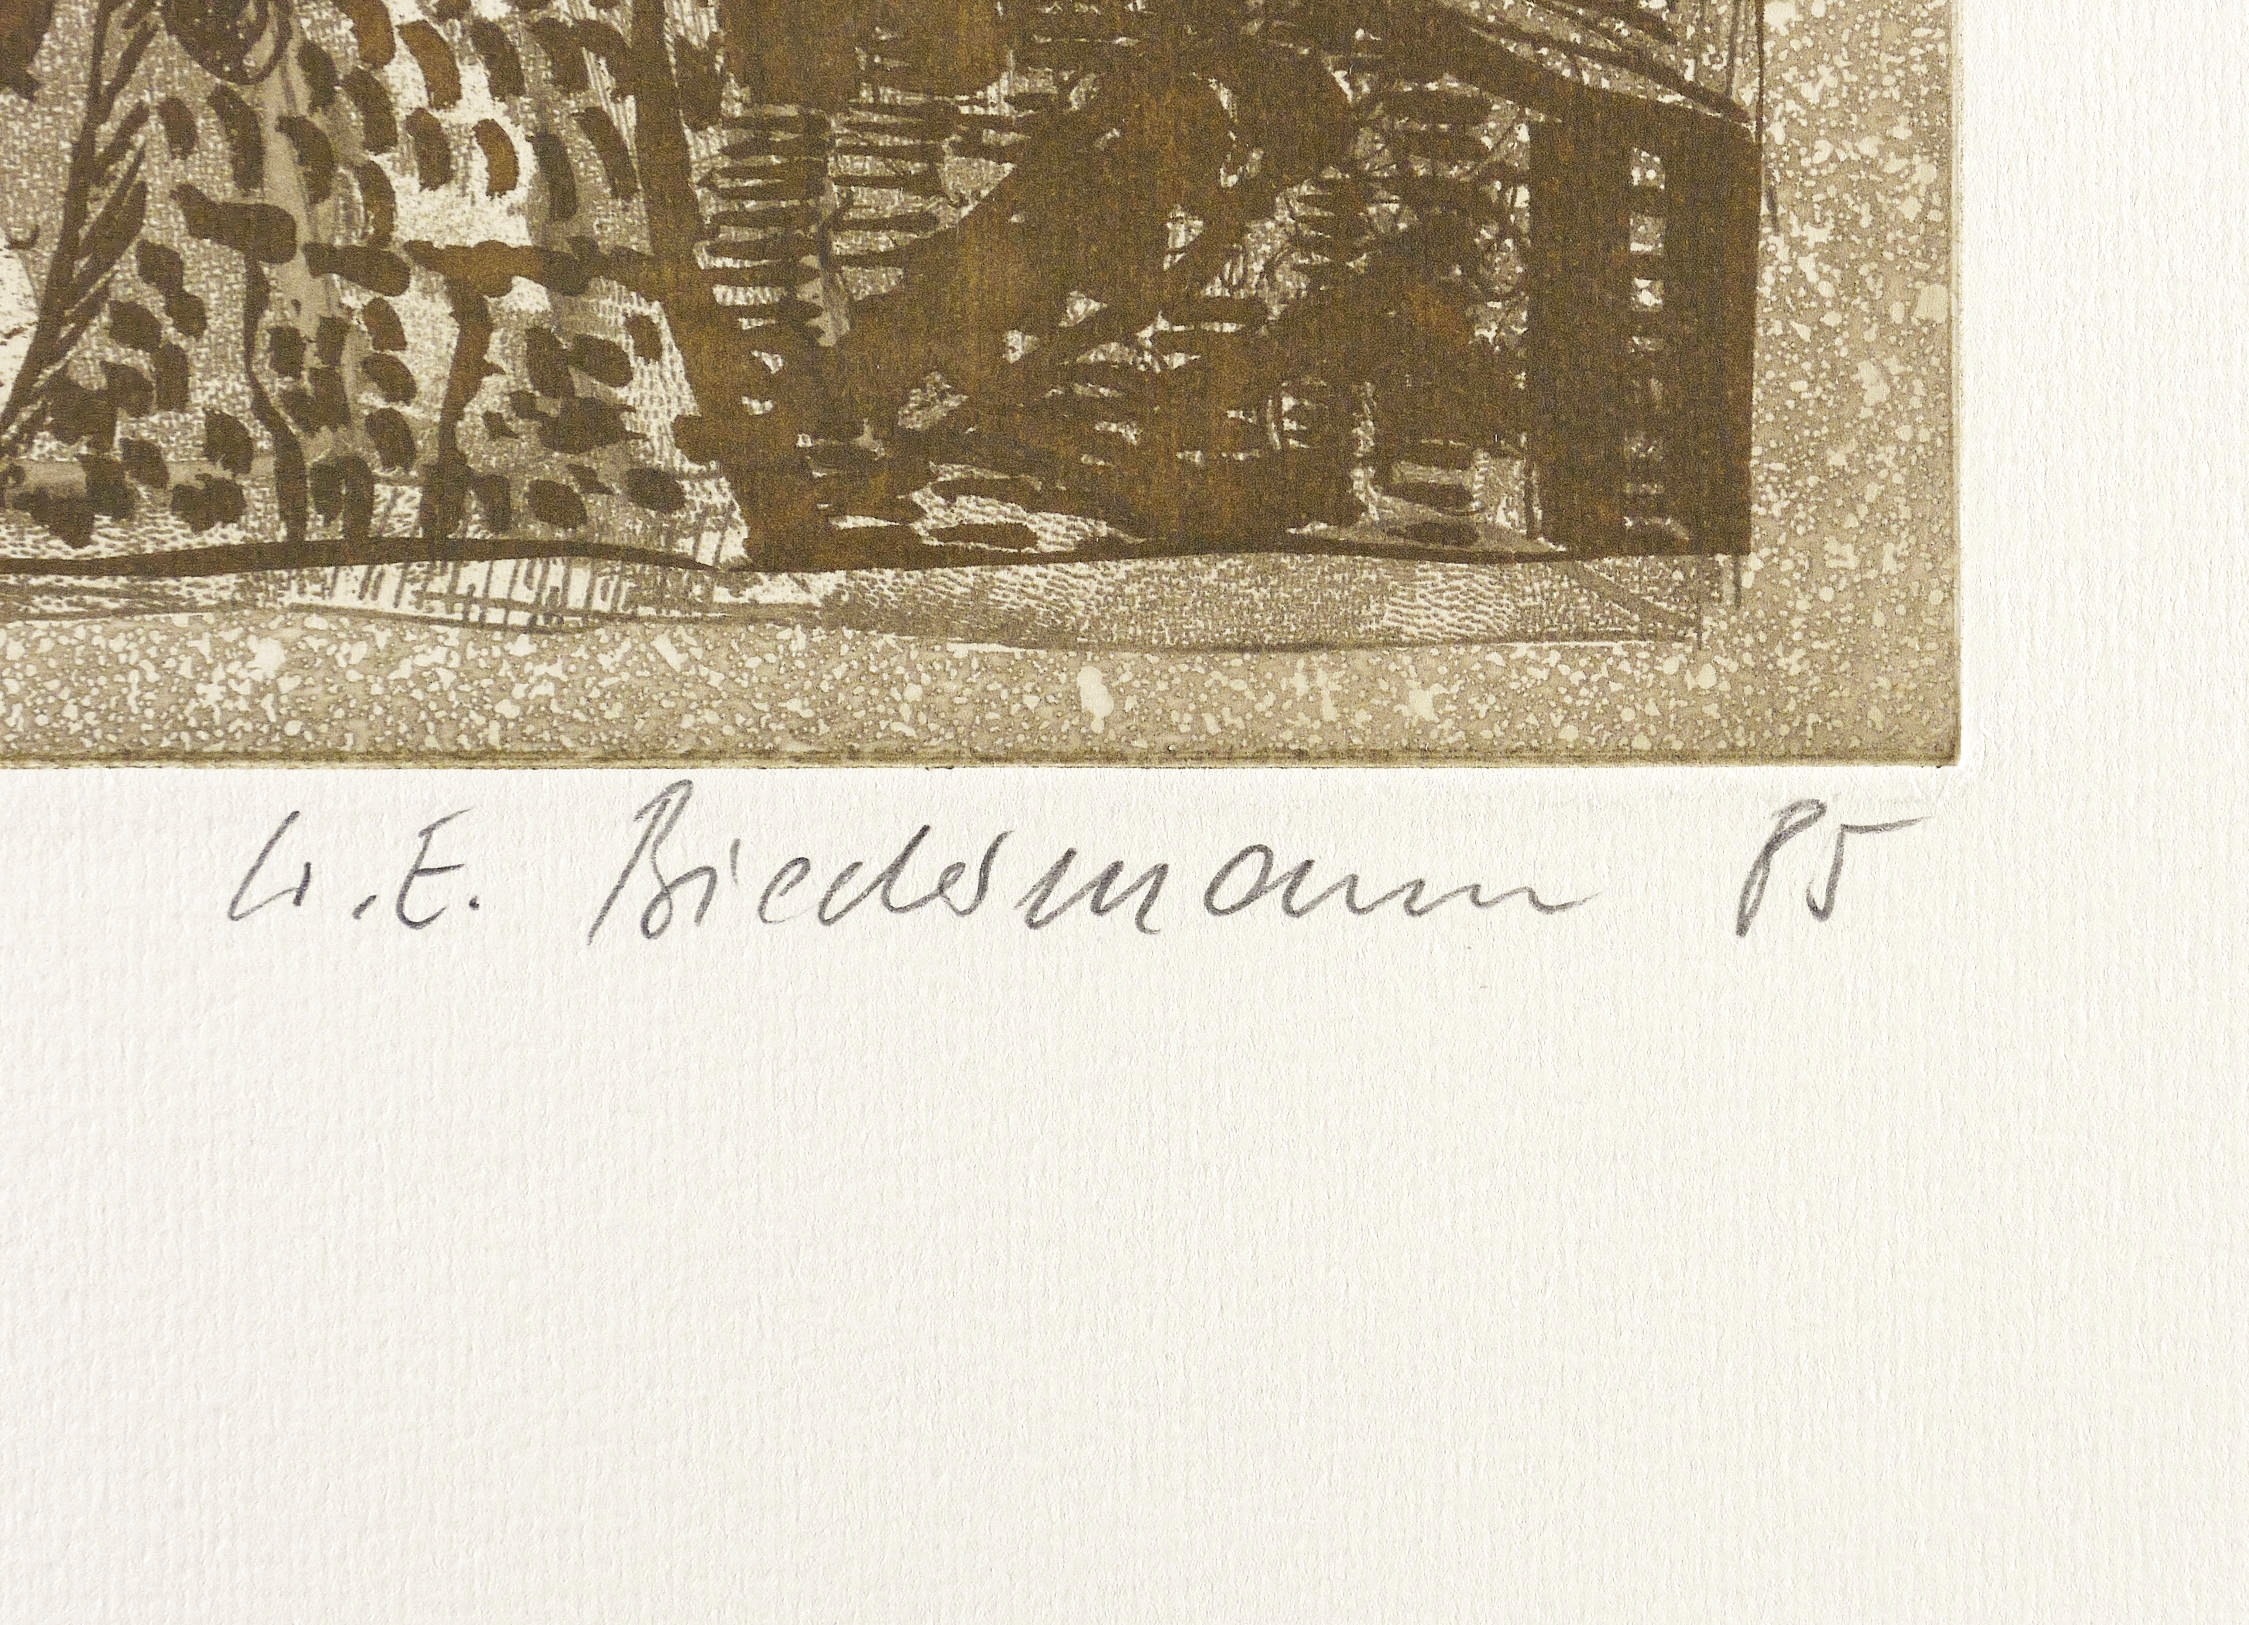 W. E. Biedermann 85